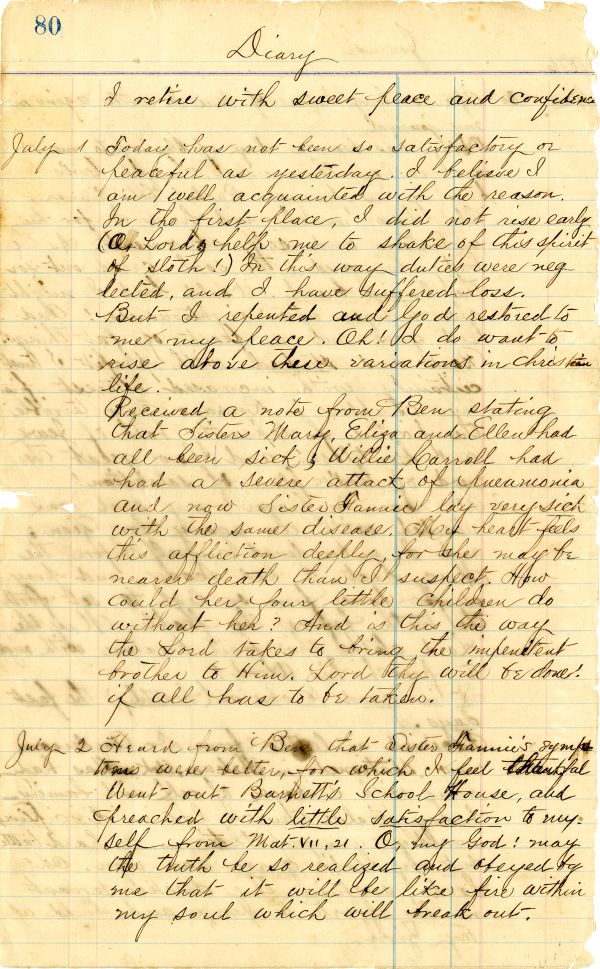 80
Diary
I retire with sweet peace and confidence
July 1 Today has not been so satisfactory or
peaceful as yesterday. I believe I
am well acquainted with the reason.
In the first place, I did not rise early
(O, Lord, help me to shake of this spirit
of sloth!) In this way duties were neg
lected, and I have suffered loss.
But I repented and God restored to
me my peace. Oh! I do want to
rise above these variations in christian
life.
Received a note from Ben stating
that Sisters Mary, Eliza and Ellen had
all been sick, Willie Carroll had
had a severe attack of Pneumonia
and now Sister Fannie lay very sick
with the same disease. My heart feels
this affliction deeply, for she may be
nearer death than I suspect. How
could her four little children do
without her? And is this the way
the Lord takes to bring the impenitent
brother to Him. Lord thy will be done!
if all has to be taken.
July 2 Heard from Ben that Sister Fannie's symp
toms were better, for which I feel thankful
Went out Barnett's School House, and
preached with little satisfaction to my-
self from Mat. VII, 21. O, my God! may
the truth be so realized and obeyed by
me that it will be like fire within
my soul which will break out.